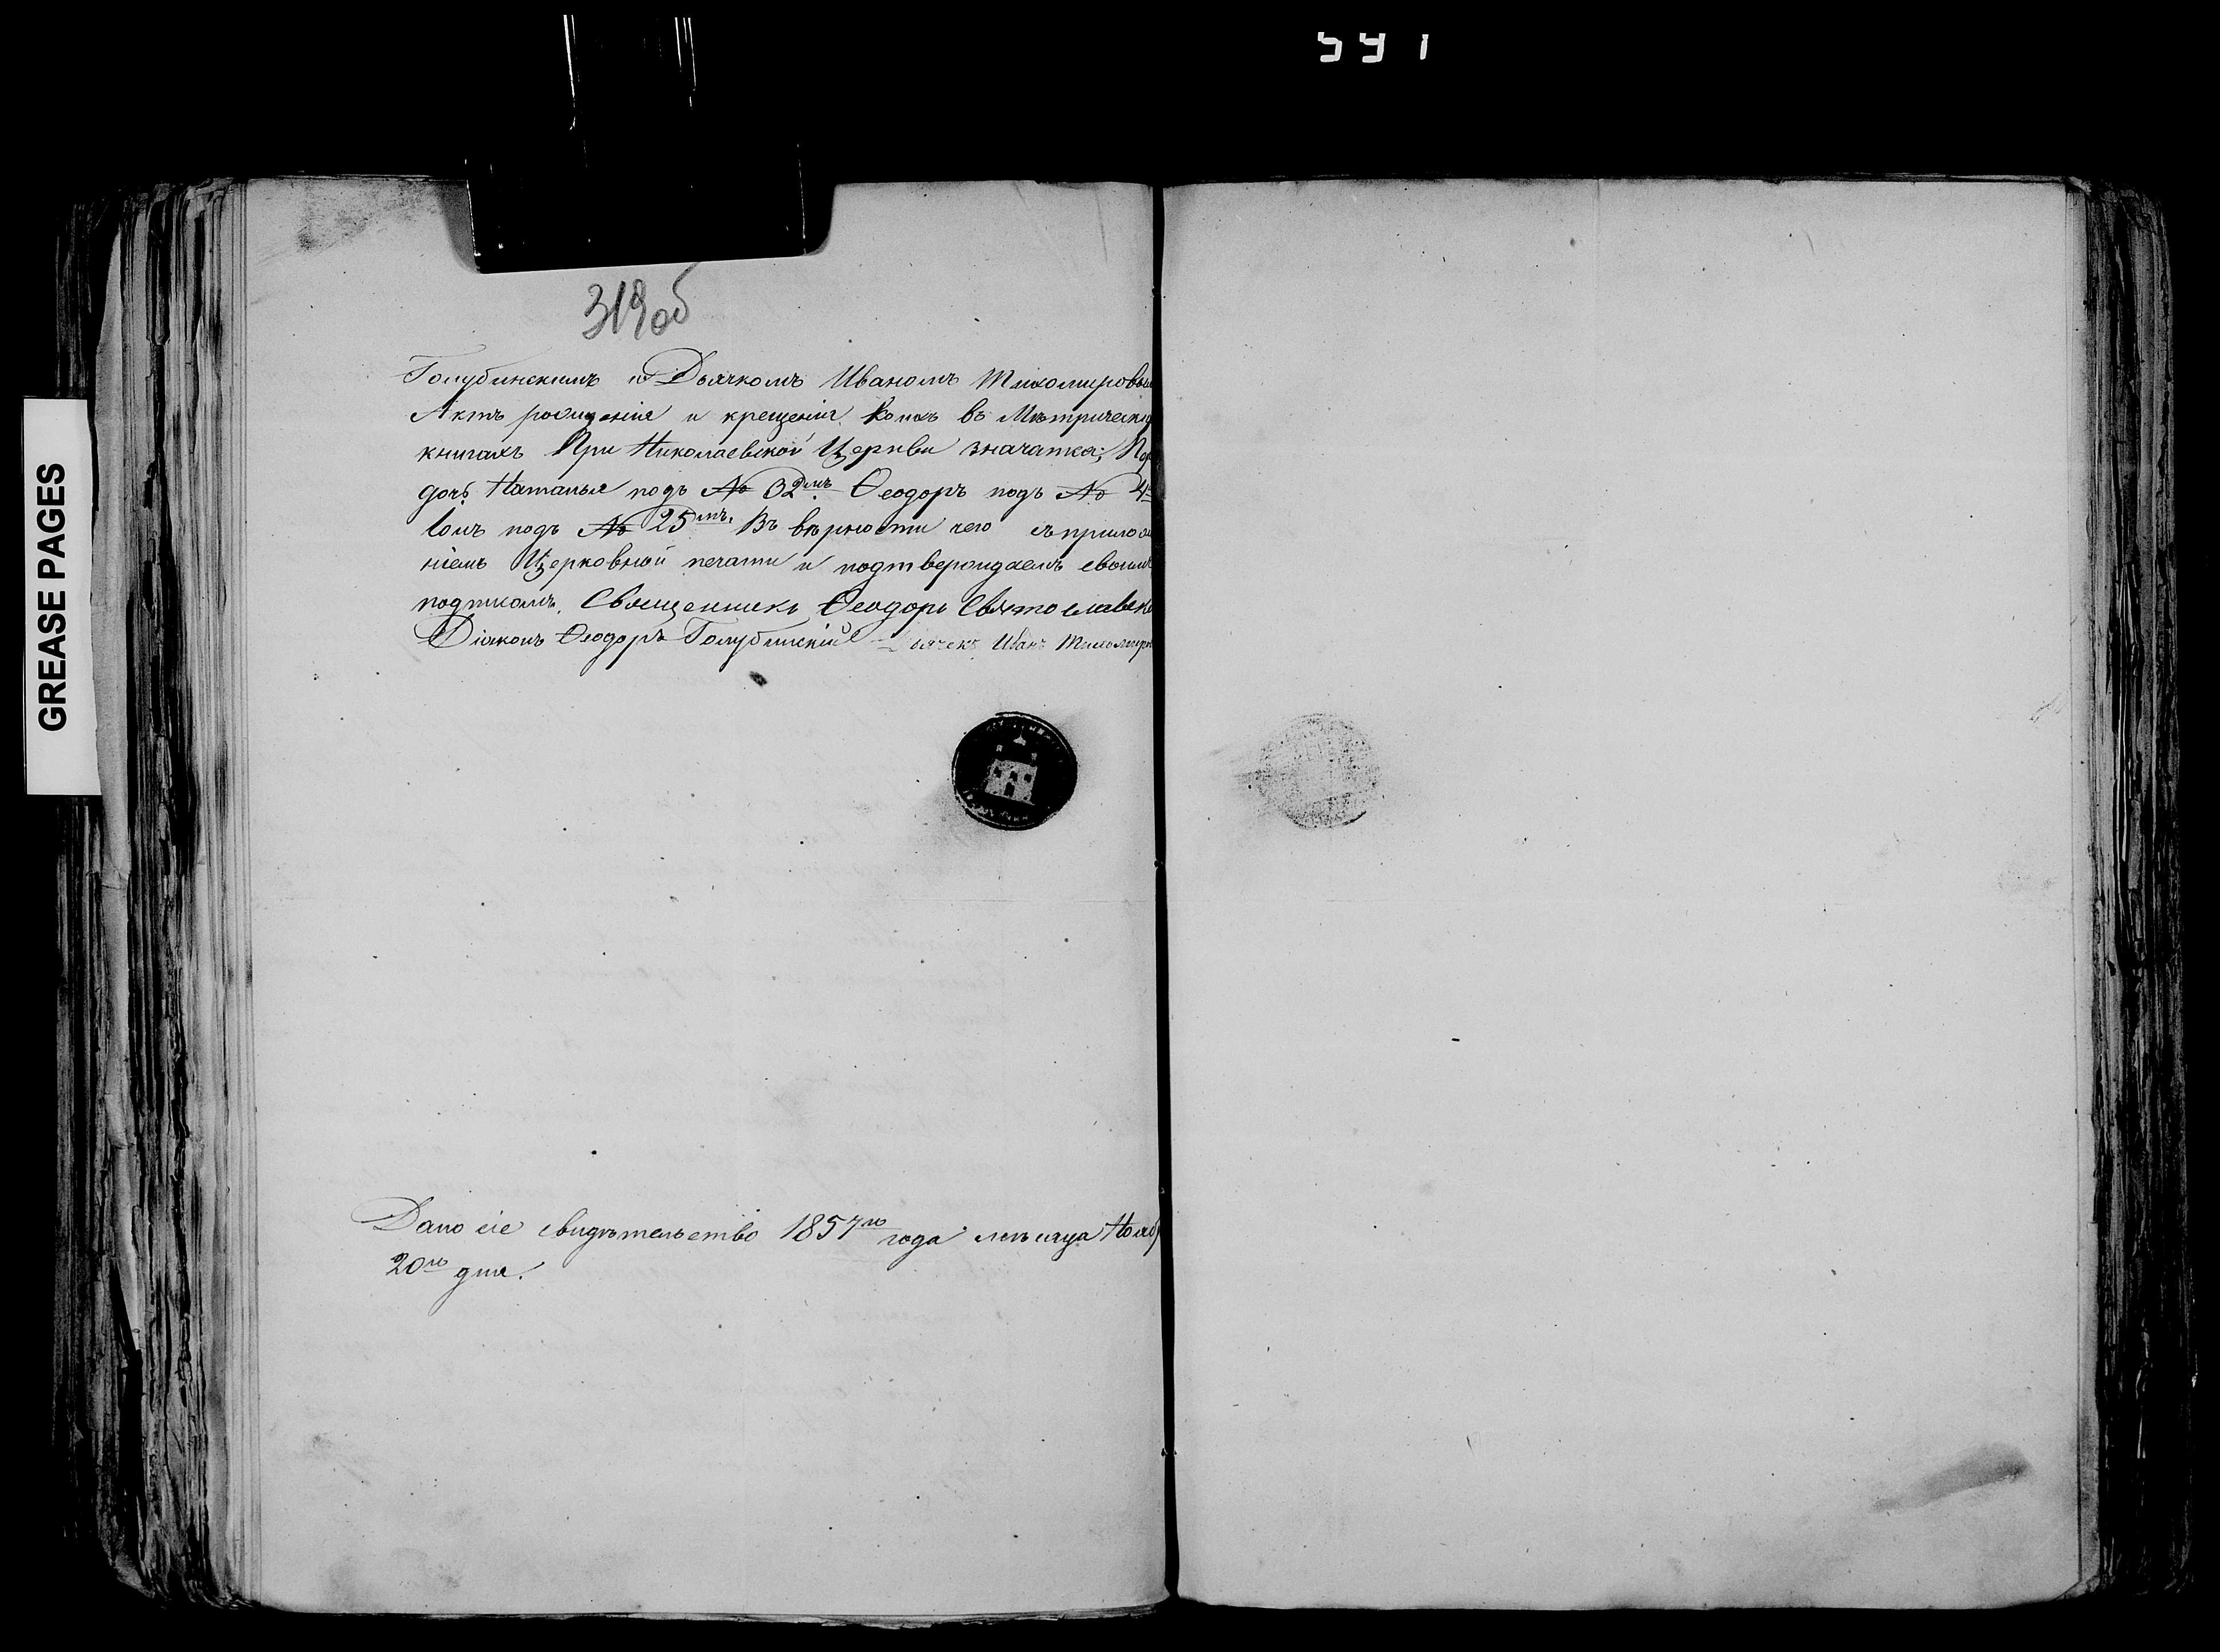 591
GREASE PAGES
319 об
Голубинскимъ и Дьячкомъ Иваномъ Тихомировы
Актъ рожденія и крещенія коихъ въ Мѣтрическ
книгахъ При Николаевской Церкви значатся;
дочь Наталья подъ № 32мъ Ѳеодоръ подъ № 4
подъ № 25мъ. Въ вѣрности чего съ прилож
ніемъ Церковной печати и подтверждаемъ своим
подписомъ. Священникъ Ѳеодоръ Святославск
Діаконъ Ѳеодоръ Голубинскій Дьячекъ Иванъ Тихомиро
Дано сіе свидѣтельство 1857го года мѣсяца Нояб
20го дня.